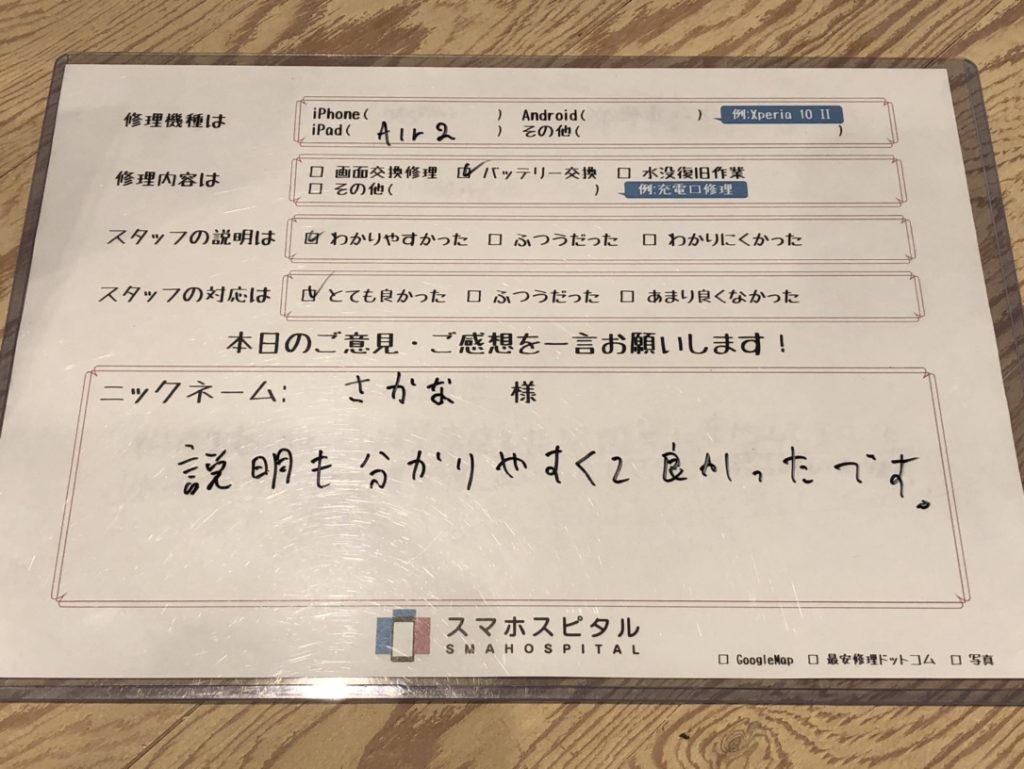 修理機種は
iPhone( ) Android( ) 例:Xperia 10 II
iPad( Air2 ) その他( )
修理内容は
□ 画面交換修理 ☑ バッテリー交換 □ 水没復旧作業
□ その他( ) 例:充電口修理
スタッフの説明は ☑ わかりやすかった □ ふつうだった □ わかりにくかった
スタッフの対応は ☑ とても良かった □ ふつうだった □ あまり良くなかった
本日のご意見・ご感想を一言お願いします!
ニックネーム: さかな 様
説明も分かりやすくて良かったです。
スマホスピタル
SMAHOSPITAL
□ GoogleMap □ 最安修理ドットコム □ 写真